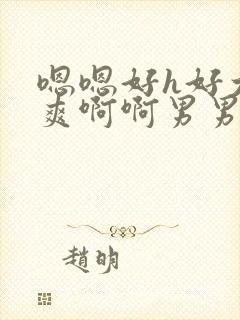 嗯嗯好h好大
爽啊啊男男
趙明